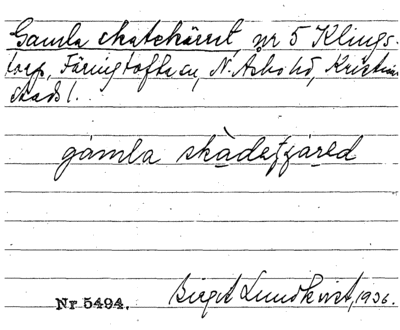 Gamla skatekärret, nr 5 Klings-
torp, Färingtofta sn, N. Åsbo hd, Kristian-
stads l.
gámla skàdeʃʒáred
Nr 5494.
Birgit Lundkvist, 1936.